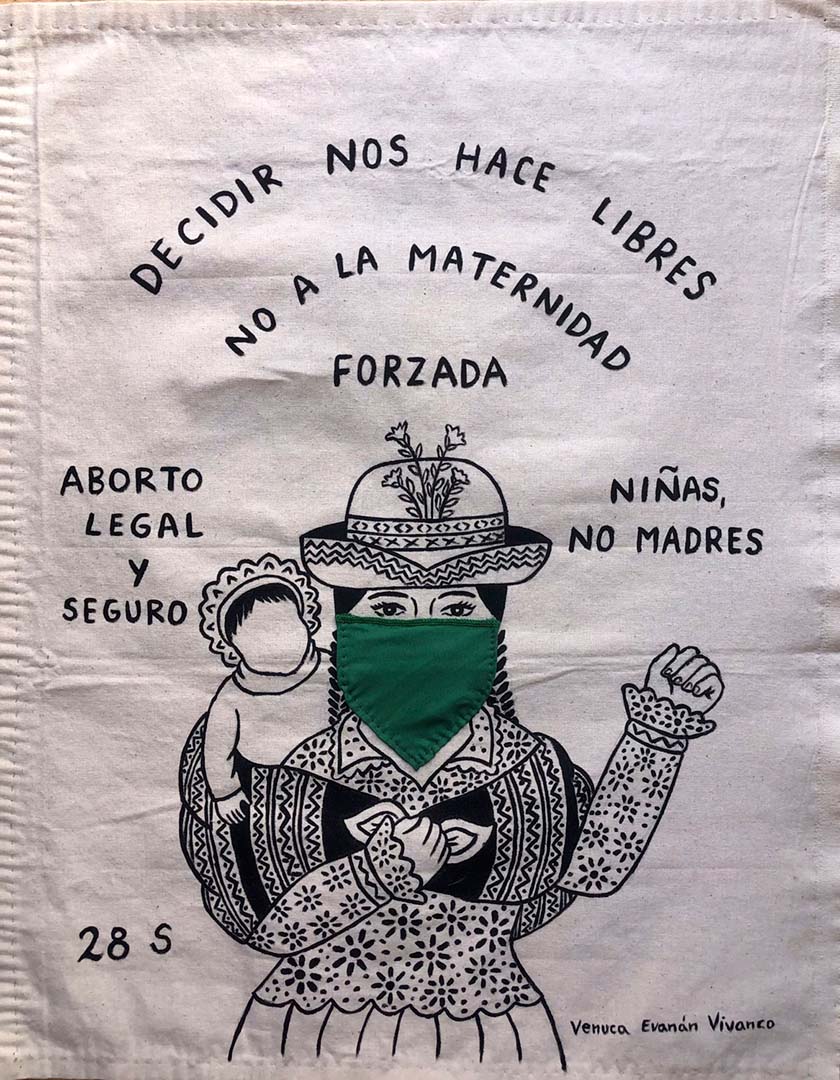 DECIDIR NOS HACE LIBRES
NO A LA MATERNIDAD
FORZADA
ABORTO
LEGAL
Y
SEGURO
NIÑAS,
NO MADRES
28 S
Venuca Evanán Vivanco